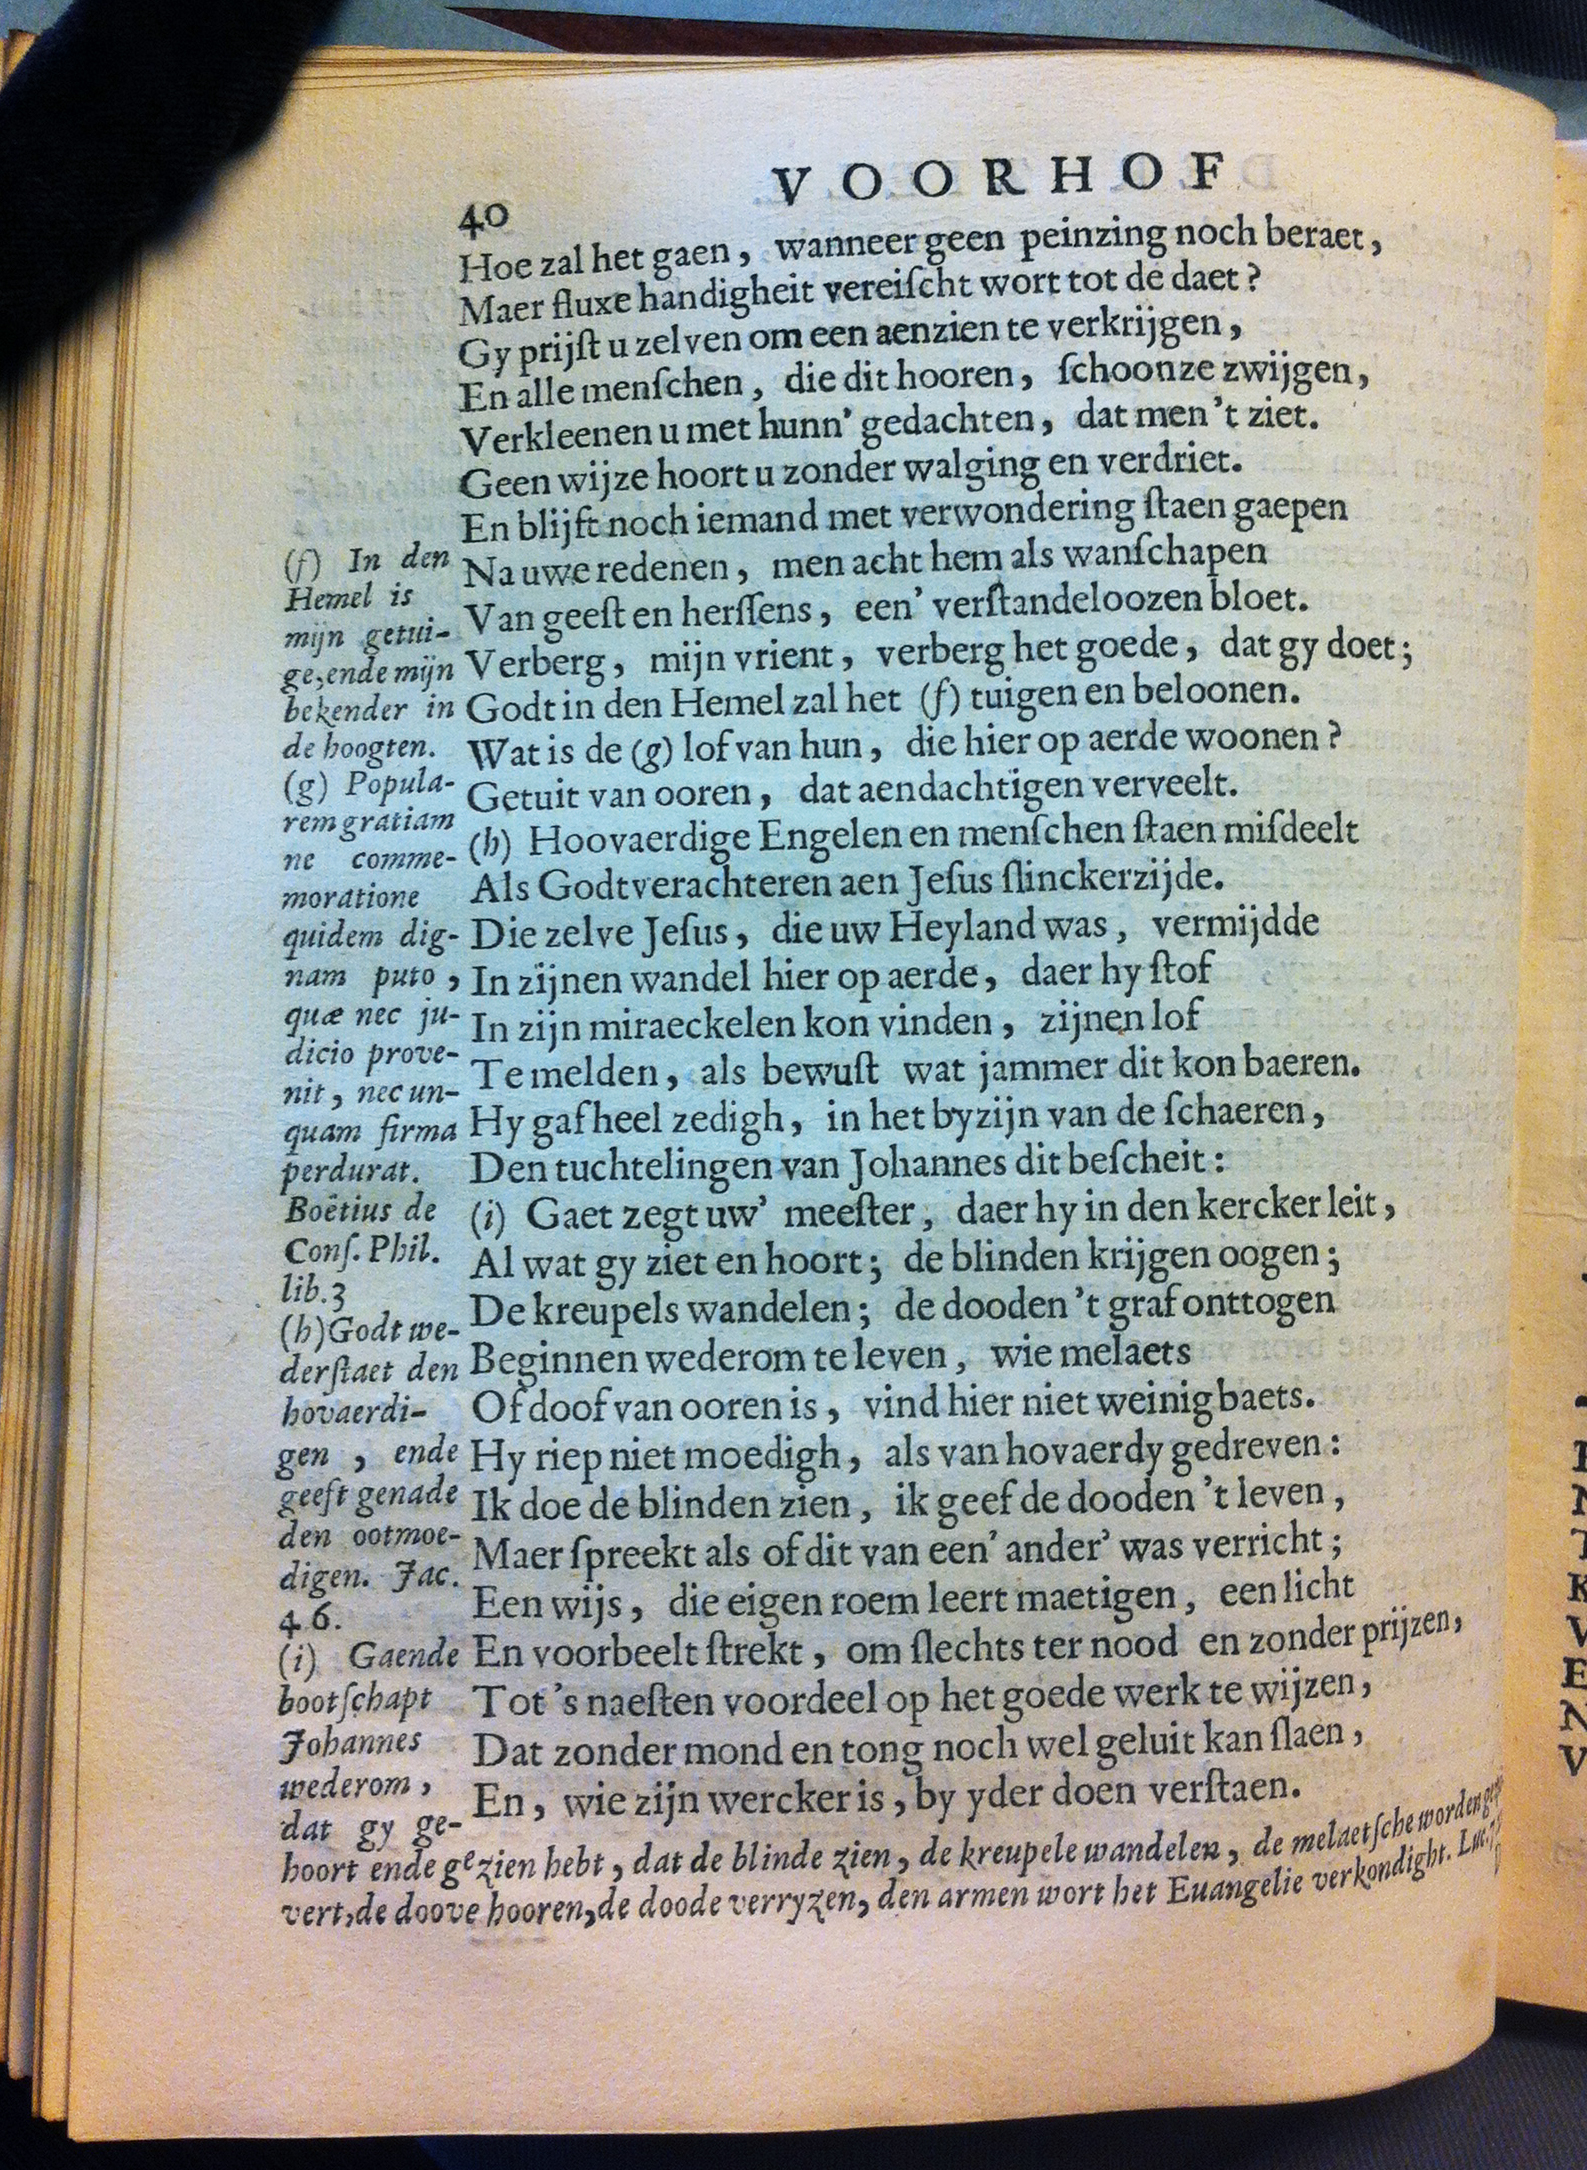 VOORHOF
40
Hoe zal het gaen, wanneer geen peinzing noch beraet,
Maer fluxe handigheit vereiſcht wort tot de daet?
Gy prijſt u zelven om een aenzien te verkrijgen,
En alle menſchen, die dit hooren, ſchoonze zwijgen,
Verkleenen u met hunn' gedachten, dat men 't ziet.
Geen wijze hoort u zonder walging en verdriet.
En blijft noch iemand met verwondering ſtaen gaepen
Na uwe redenen, men acht hem als wanſchapen
Van geeſt en herſſens, een' verſtandeloozen bloet.
Verberg, mijn vrient, verberg het goede, dat gy doet;
Godt in den Hemel zal het (f) tuigen en beloonen.
Wat is de (g) lof van hun, die hier op aerde woonen?
Getuit van ooren, dat aendachtigen verveelt.
(h) Hoovaerdige Engelen en menſchen ſtaen miſdeelt
Als Godtverachteren aen Jeſus ſlinckerzijde.
Die zelve Jeſus, die uw Heyland was, vermijdde
In zijnen wandel hier op aerde, daer hy ſtof
In zijn miraeckelen kon vinden, zijnen lof
Te melden, als bewuſt wat jammer dit kon baeren.
Hy gaf heel zedigh, in het byzijn van de ſchaeren,
Den tuchtelingen van Johannes dit beſcheit:
(i) Gaet zegt uw' meeſter, daer hy in den kercker leit,
Al wat gy ziet en hoort; de blinden krijgen oogen;
De kreupels wandelen; de dooden 't graf onttogen
Beginnen wederom te leven, wie melaets
Of doof van ooren is, vind hier niet weinig baets.
Hy riep niet moedigh, als van hovaerdy gedreven:
Ik doe de blinden zien, ik geef de dooden 't leven,
Maer ſpreekt als of dit van een' ander' was verricht;
Een wijs, die eigen roem leert maetigen, een licht
En voorbeelt ſtrekt, om ſlechts ter nood en zonder prijzen,
Tot 's naeſten voordeel op het goede werk te wijzen,
Dat zonder mond en tong noch wel geluit kan ſlaen,
En, wie zijn wercker is, by yder doen verſtaen.
(f) In den
Hemel is
mijn getui-
ge, ende mijn
bekender in
de hoogten.
(g) Popula-
rem gratiam
ne comme-
moratione
quidem dig-
nam puto,
quæ nec ju-
dicio prove-
nit, nec un-
quam firma
perdurat.
Boëtius de
Conſ. Phil.
lib. 3
(h) Godt we-
derſtaet den
hovaerdi-
gen, ende
geeft genade
den ootmoe-
digen. Jac.
4.6.
(i) Gaende
bootſchapt
Johannes
wederom,
dat gy ge-
hoort ende gezien hebt, dat de blinde zien, de kreupele wandelen, de melaetſche worden
vert, de doove hooren, de doode verryzen, den armen wort het Euangelie verkondight. Luc. 7